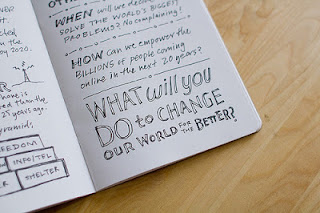 by 2020.
25 years ago.
pyramids,
FREEDOM
INFO|TEL
SHELTER
WHEN will we
SOLVE THE WORLD'S BIGGEST
PROBLEMS? No complaining!
HOW can we empower the
BILLIONS of people coming
online in the next 20 years?
WHAT will you
DO to CHANGE
OUR WORLD FOR THE BETTER?